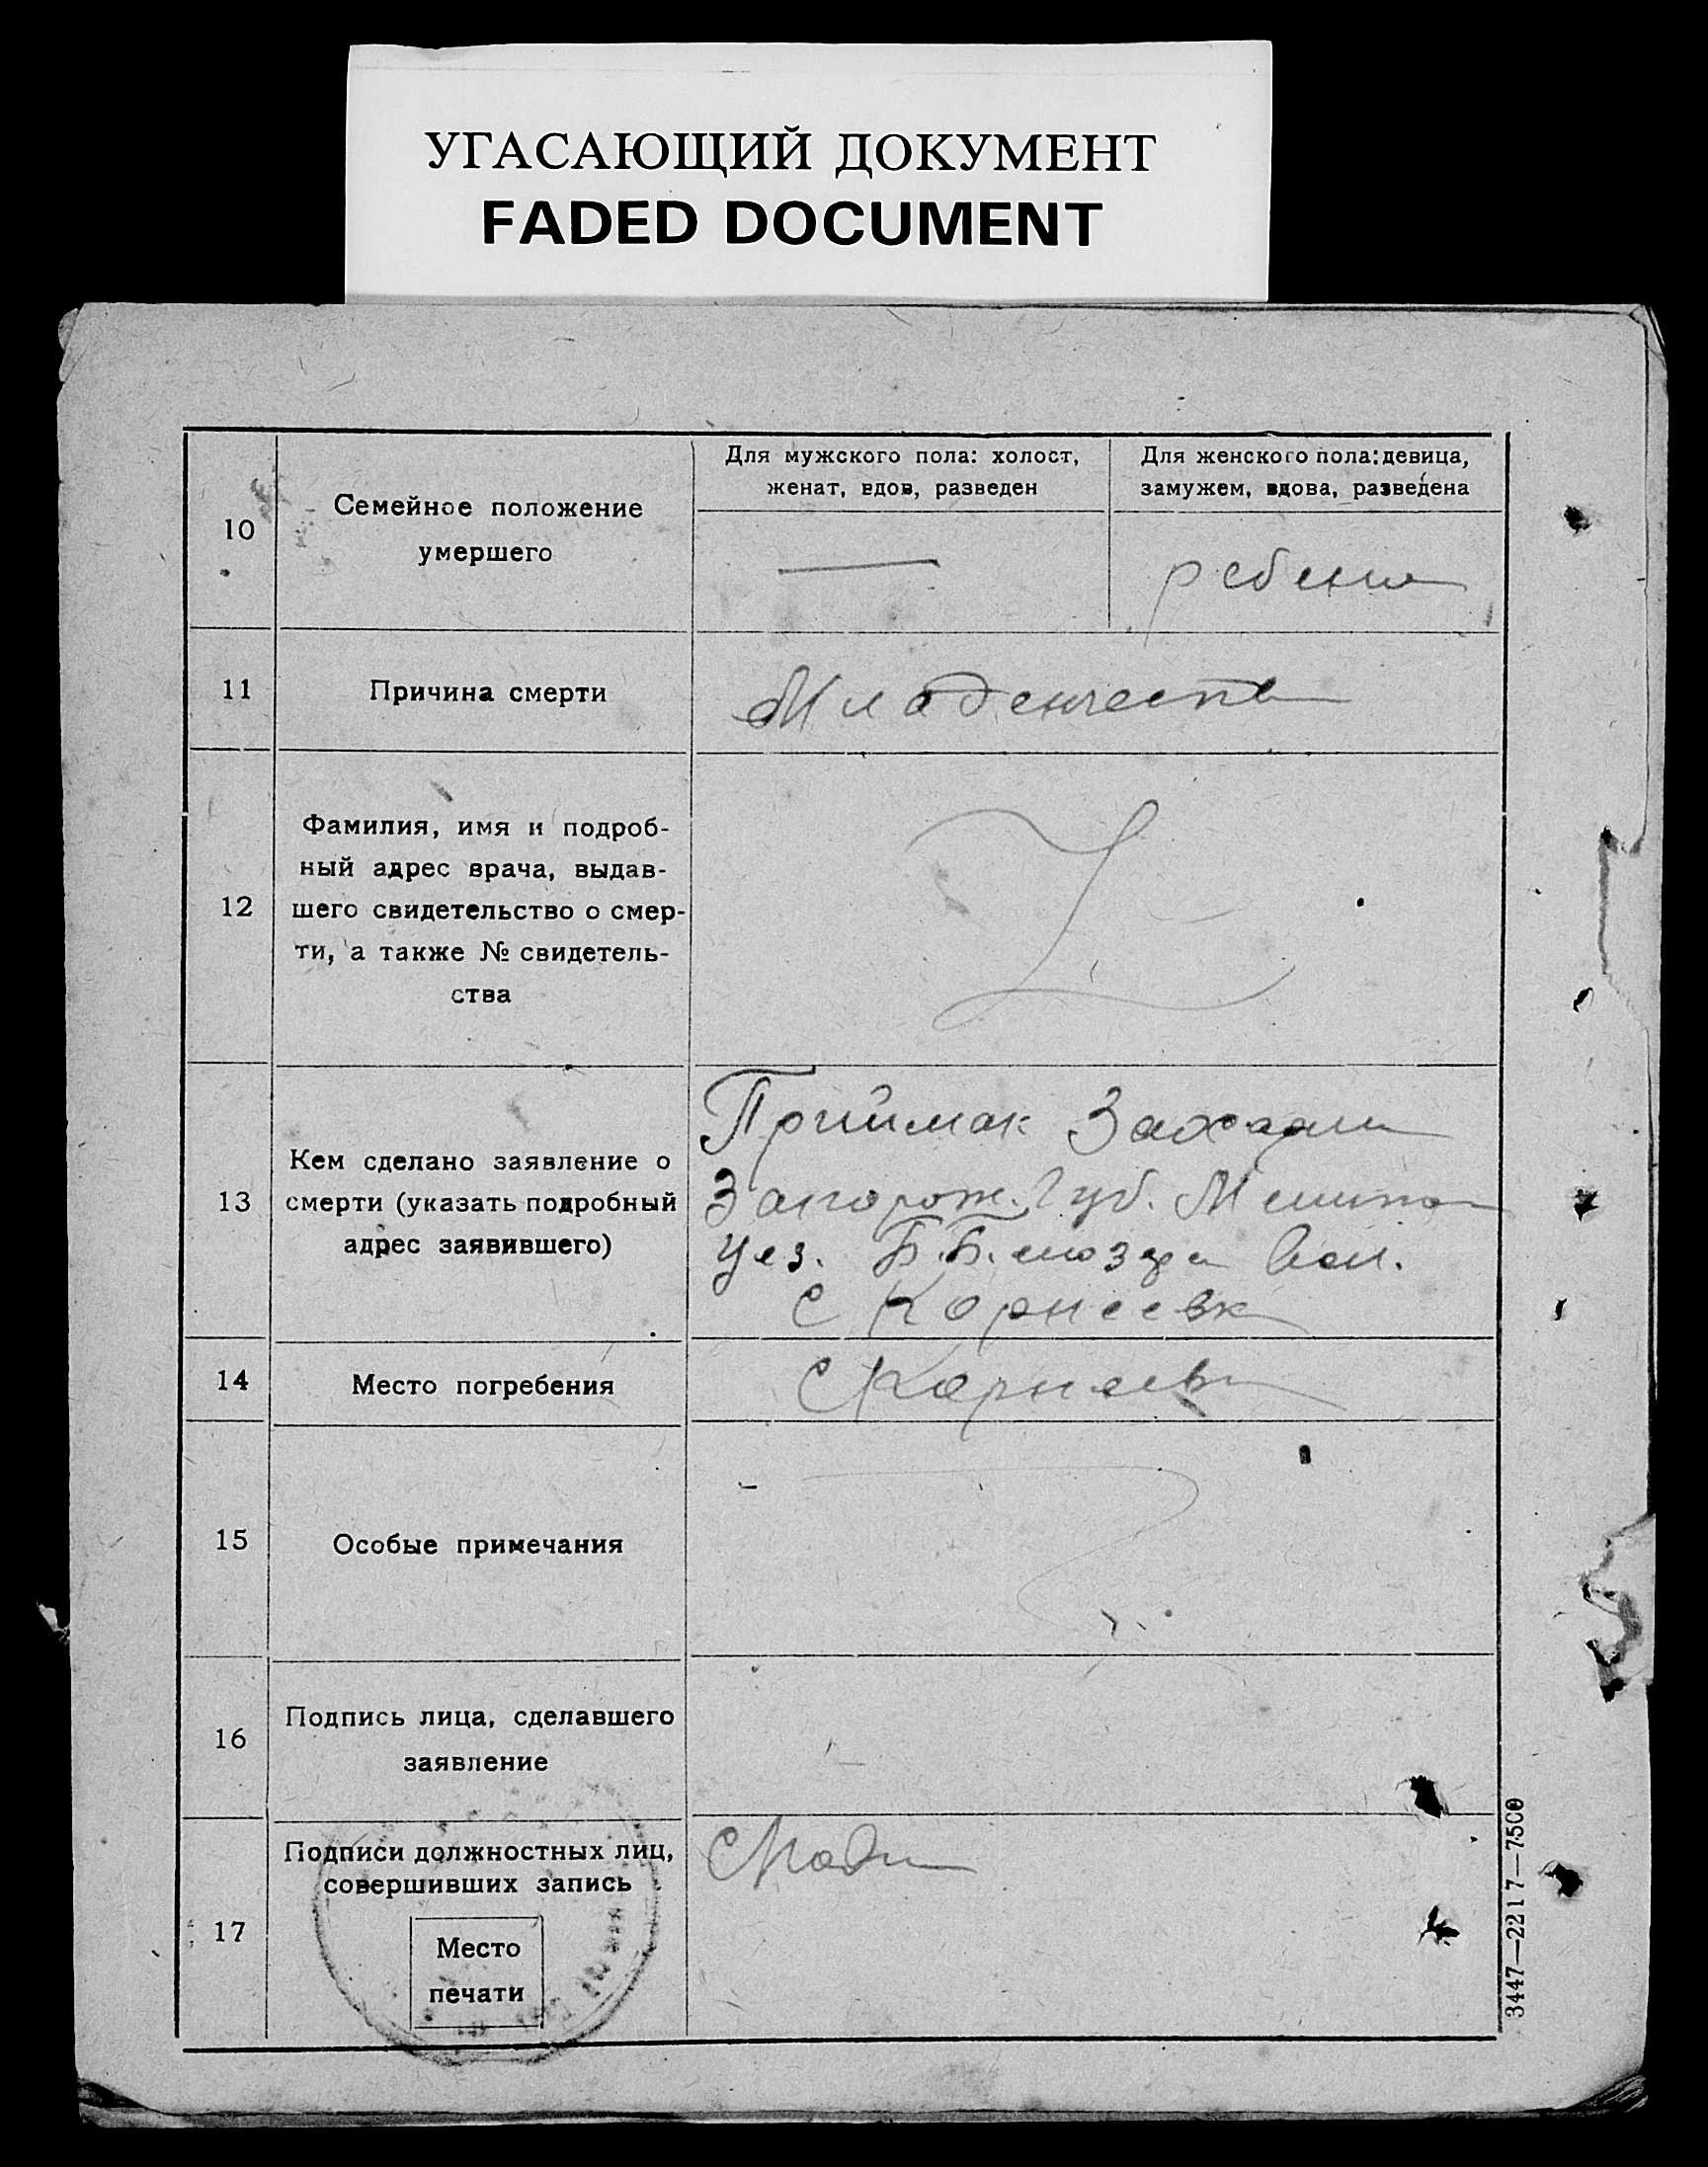 УГАСАЮЩИЙ ДОКУМЕНТ
FADED DOCUMENT
10
Семейное положение
умершего
Для мужского пола: холост,
женат, вдов, разведен
Для женского пола: девица,
замужем, вдова, разведена
—
ребенок
11
Причина смерти
Младенчеств
12
Фамилия, имя и подроб-
ный адрес врача, выдав-
шего свидетельство о смер-
ти, а также № свидетель-
ства
13
Кем сделано заявление о
смерти (указать подробный
адрес заявившего)
Приймак
Запорож. Губ. Мелито
Уез. вол.
с Корнеевк
14
Место погребения
с Корнеевк
15
Особые примечания
16
Подпись лица, сделавшего
заявление
17
Подписи должностных лиц,
совершивших запись
Место
печати
3447—2217—7500